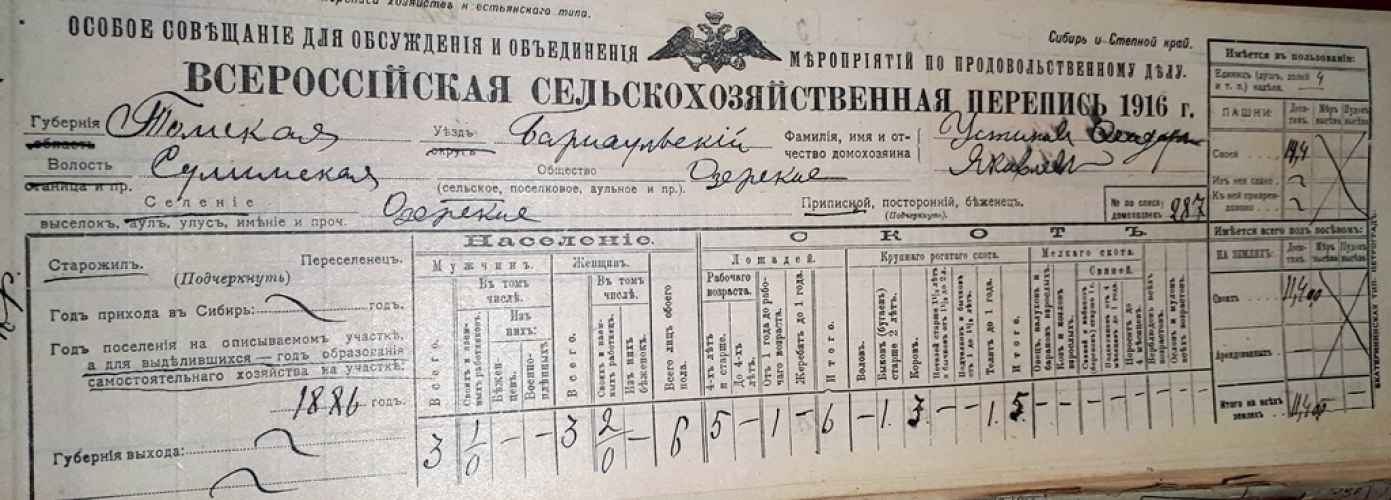 хозяйства крестьянскаго типа.
ОСОБОЕ СОВѢЩАНІЕ ДЛЯ ОБСУЖДЕНІЯ И ОБЪЕДИНЕНІЯ МѢРОПРІЯТІЙ ПО ПРОДОВОЛЬСТВЕННОМУ ДѢЛУ.
Сибирь и Степной край.
ВСЕРОССІЙСКАЯ СЕЛЬСКОХОЗЯЙСТВЕННАЯ ПЕРЕПИСЬ 1916 г.
Губернія Томская Уѣздъ Барнаульскій Фамилія, имя и от- Устинов
область округъ чество домохозяина Яковлев
Волость Общество Озерское
станица и пр. (сельское, поселковое, аульное и пр.).
Селеніе Озерские Приписной, посторонній, бѣженецъ. № по списку 287
выселокъ, аулъ, улусъ, имѣніе и проч. (Подчеркнуть). домохозяевъ
Старожилъ. Переселенецъ.
(Подчеркнуть)
Годъ прихода въ Сибирь: годъ.
Годъ поселенія на описываемомъ участкѣ,
а для выдѣлившихся — годъ образованія
самостоятельнаго хозяйства на участкѣ:
1886 годъ.
Губернія выхода:
Населеніе.
Мужчинъ. Женщинъ.
Въ томъ числѣ. Въ томъ числѣ.
Изъ нихъ:
Всего.
Своихъ и наемныхъ работниковъ.
Бѣженцевъ.
Военноплѣнныхъ.
Всего.
Своихъ и наемныхъ работницъ.
Изъ нихъ бѣженокъ.
Всего лицъ обоего пола.
3 1/0 – – 3 2/0 – 6
СКОТЪ
Лошадей. Крупнаго рогатаго скота. Мелкаго скота.
Рабочаго возраста. Свиней.
4-хъ лѣтъ и старше.
До 4-хъ лѣтъ.
Отъ 1 года до рабочаго возраста.
Жеребятъ до 1 года.
Итого.
Воловъ.
Быковъ (бугаевъ) старше 2 лѣтъ.
Коровъ.
Телятъ до 1 года.
Итого.
5 – 1 – 6 – 1. 3 – – 1. 5 – – – – – – –
Имѣется въ пользованіи:
Единицъ (душ, долей и т. п.) надѣла. 4
ПАШНИ: Деся-тинъ. Мѣръ высѣва. Пудовъ высѣва.
Своей 14,4
Изъ нея сдано
Къ ней приарендовано
Имѣется всего подъ посѣвомъ:
НА ЗЕМЛЯХЪ: Деся-тинъ. Мѣръ высѣва. Пудовъ высѣва.
Своихъ 11,400
Арендованныхъ
Итого на всѣхъ земляхъ 11,400 –
ЕКАТЕРИНИНСКАЯ ТИП. ПЕТРОГРАДЪ.